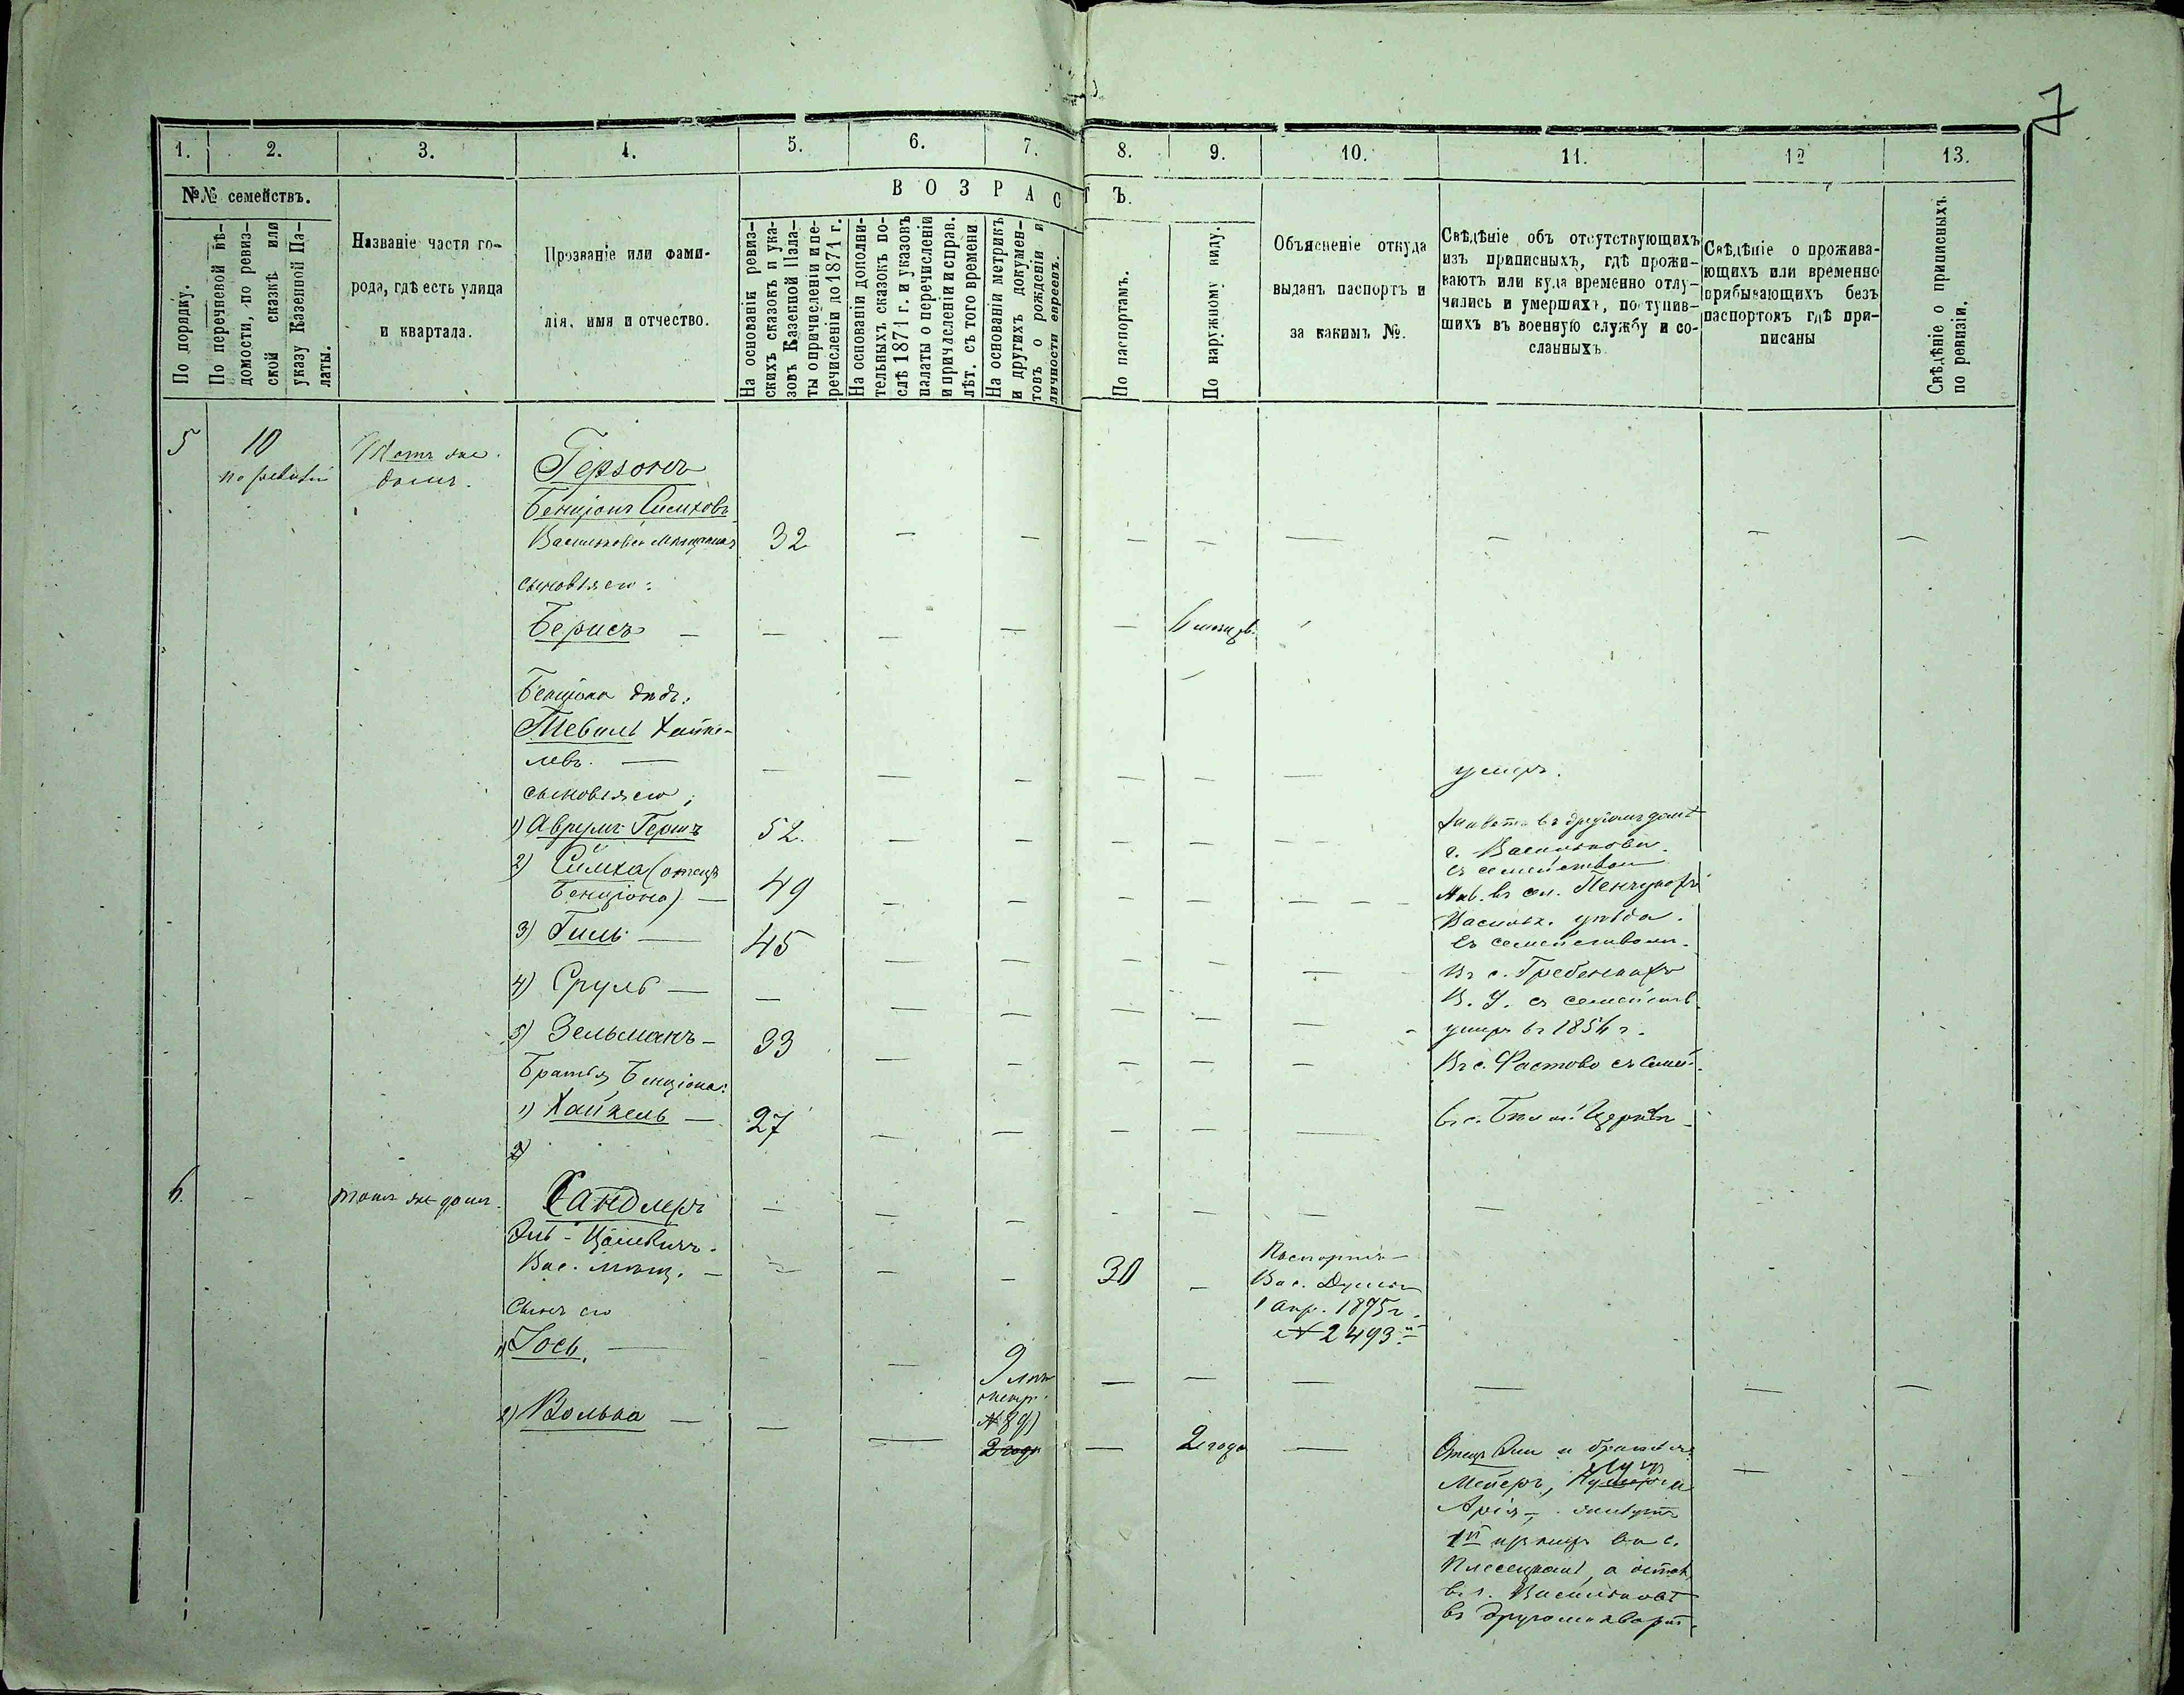 7
1.
2.
3.
4.
5.
6.
7.
8.
9.
10.
11.
12
13.
№№ семействъ.
По порядку.
По перечневой вѣ-
домости, по ревиз-
ской сказкѣ или
указу Казенной Па-
латы.
Названіе части го-
рода, гдѣ есть улица
и квартала.
Прозваніе или фами-
лія, имя и отчество.
ВОЗРАСТЪ.
На основаніи ревиз-
скихъ сказокъ и ука-
зовъ Казенной Пала-
ты о причисленіи и пе-
речисленіи до 1871 г.
На основаніи дополни-
тельныхъ сказокъ по-
слѣ 1871 г. и указовъ
палаты о перечисленіи
и причисленіи и справ.
лѣт. съ того времени
На основаніи метрикъ
и другихъ докумен-
товъ о рожденіи и
личности евреевъ.
По паспортамъ.
По наружному виду.
Объясненіе откуда
выданъ паспортъ и
за какимъ №.
Свѣдѣніе объ отсутствующихъ
изъ приписныхъ, гдѣ прожи-
ваютъ или куда временно отлу-
чились и умершихъ, поступив-
шихъ въ военную службу и со-
сланныхъ
Свѣдѣніе о прожива-
ющихъ или временно
прибывающихъ безъ
паспортовъ гдѣ при-
писаны
Свѣдѣніе о приписныхъ
по ревизіи.
5
10
по ревизіи
Тотъ же
домъ.
Герзонъ
Бенціонъ Симховъ
Васильковск мѣщанинъ
32
сыновья его:
Берисъ
Бенціона дядъ:
Тевель Хайке-
левъ.
умеръ.
сыновья его;
1) Аврумъ Гершъ
52
живетъ въ другомъ домѣ
г. Василькова
съ семействомъ
2) Симха (отецъ
Бенціона)
49
жив. въ сел.
Васильк. уѣзда.
съ семействомъ.
3) Гиль
45
Въ с. Гребенкахъ
В. У. съ семейств.
4) Сруль
умеръ въ 1854 г.
5) Зельманъ
33
Въ с. Фастово съ семей.
Братья Бенціона:
1) Хайкель
27
въ с. Бѣлой Церкви
2)
6.
тотъ же домъ.
Сандлеръ
Вас. мѣщ.
30
Паспортъ
Вас. Думы
1 апр. 1875 г.
№ 2493
Сынъ его
1) Іось.
9 лѣтъ
метр.
№ 89)
2) Волько
2 года
2 года
Отецъ Эли и братья:
Мейеръ,
Арія - живутъ
1й
Плесецкомъ, а остал.
въ г. Васильковѣ
въ другомъ кварт.